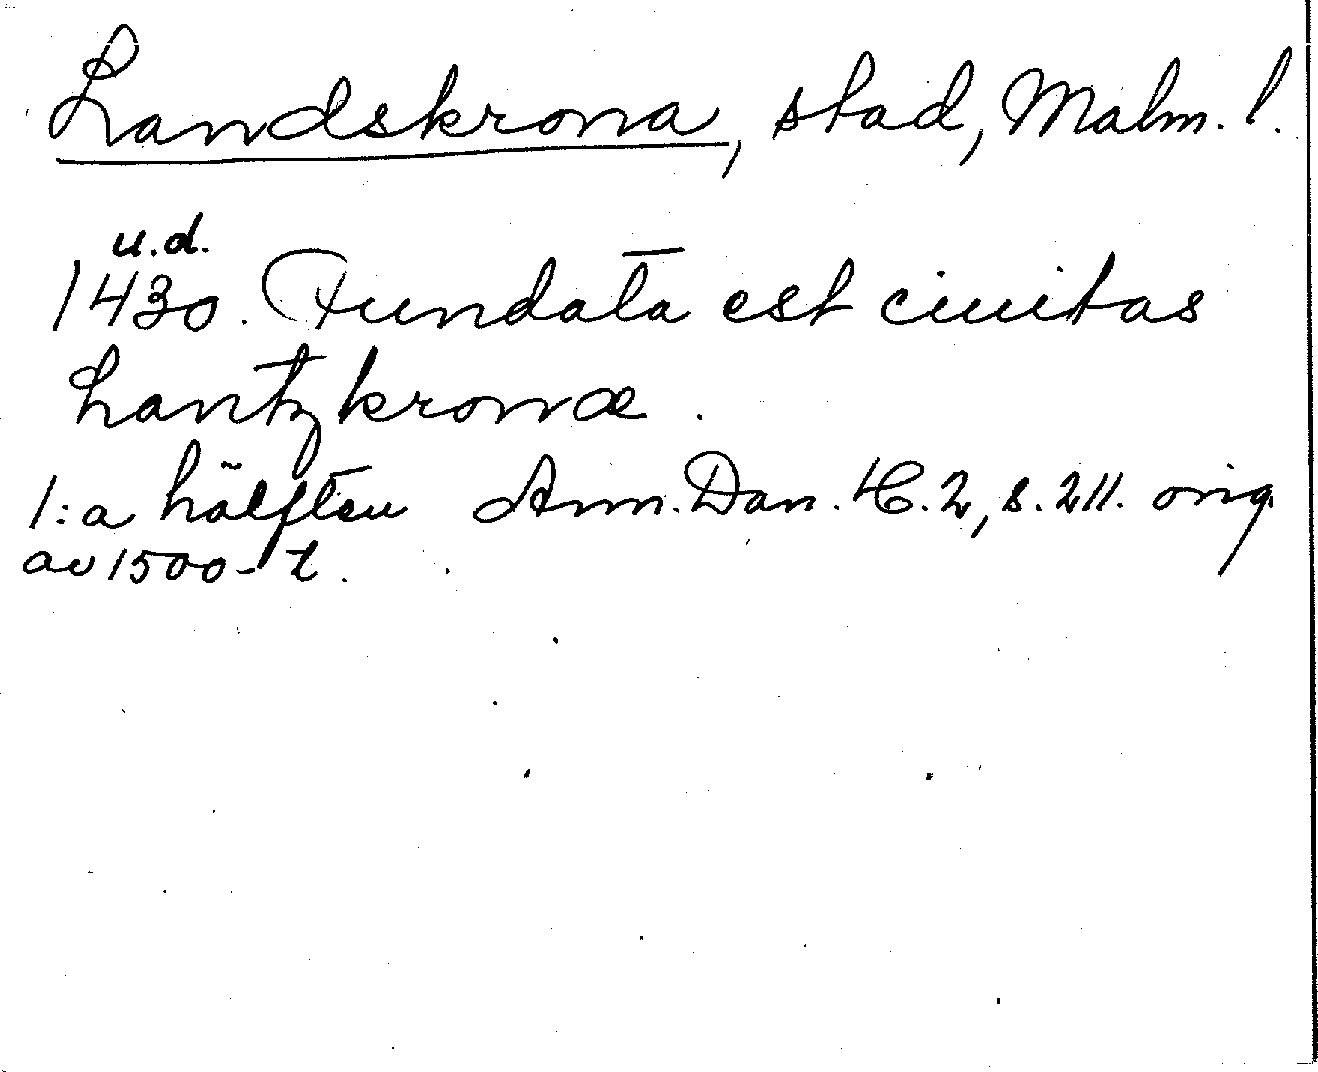 Landskrona, stad, Malm. l.
u.d.
1430. Fundata est ciuitas
Lantzkronæ.
1:a hälften Ann. Dan. H. 2, s. 211. orig.
av 1500-t.